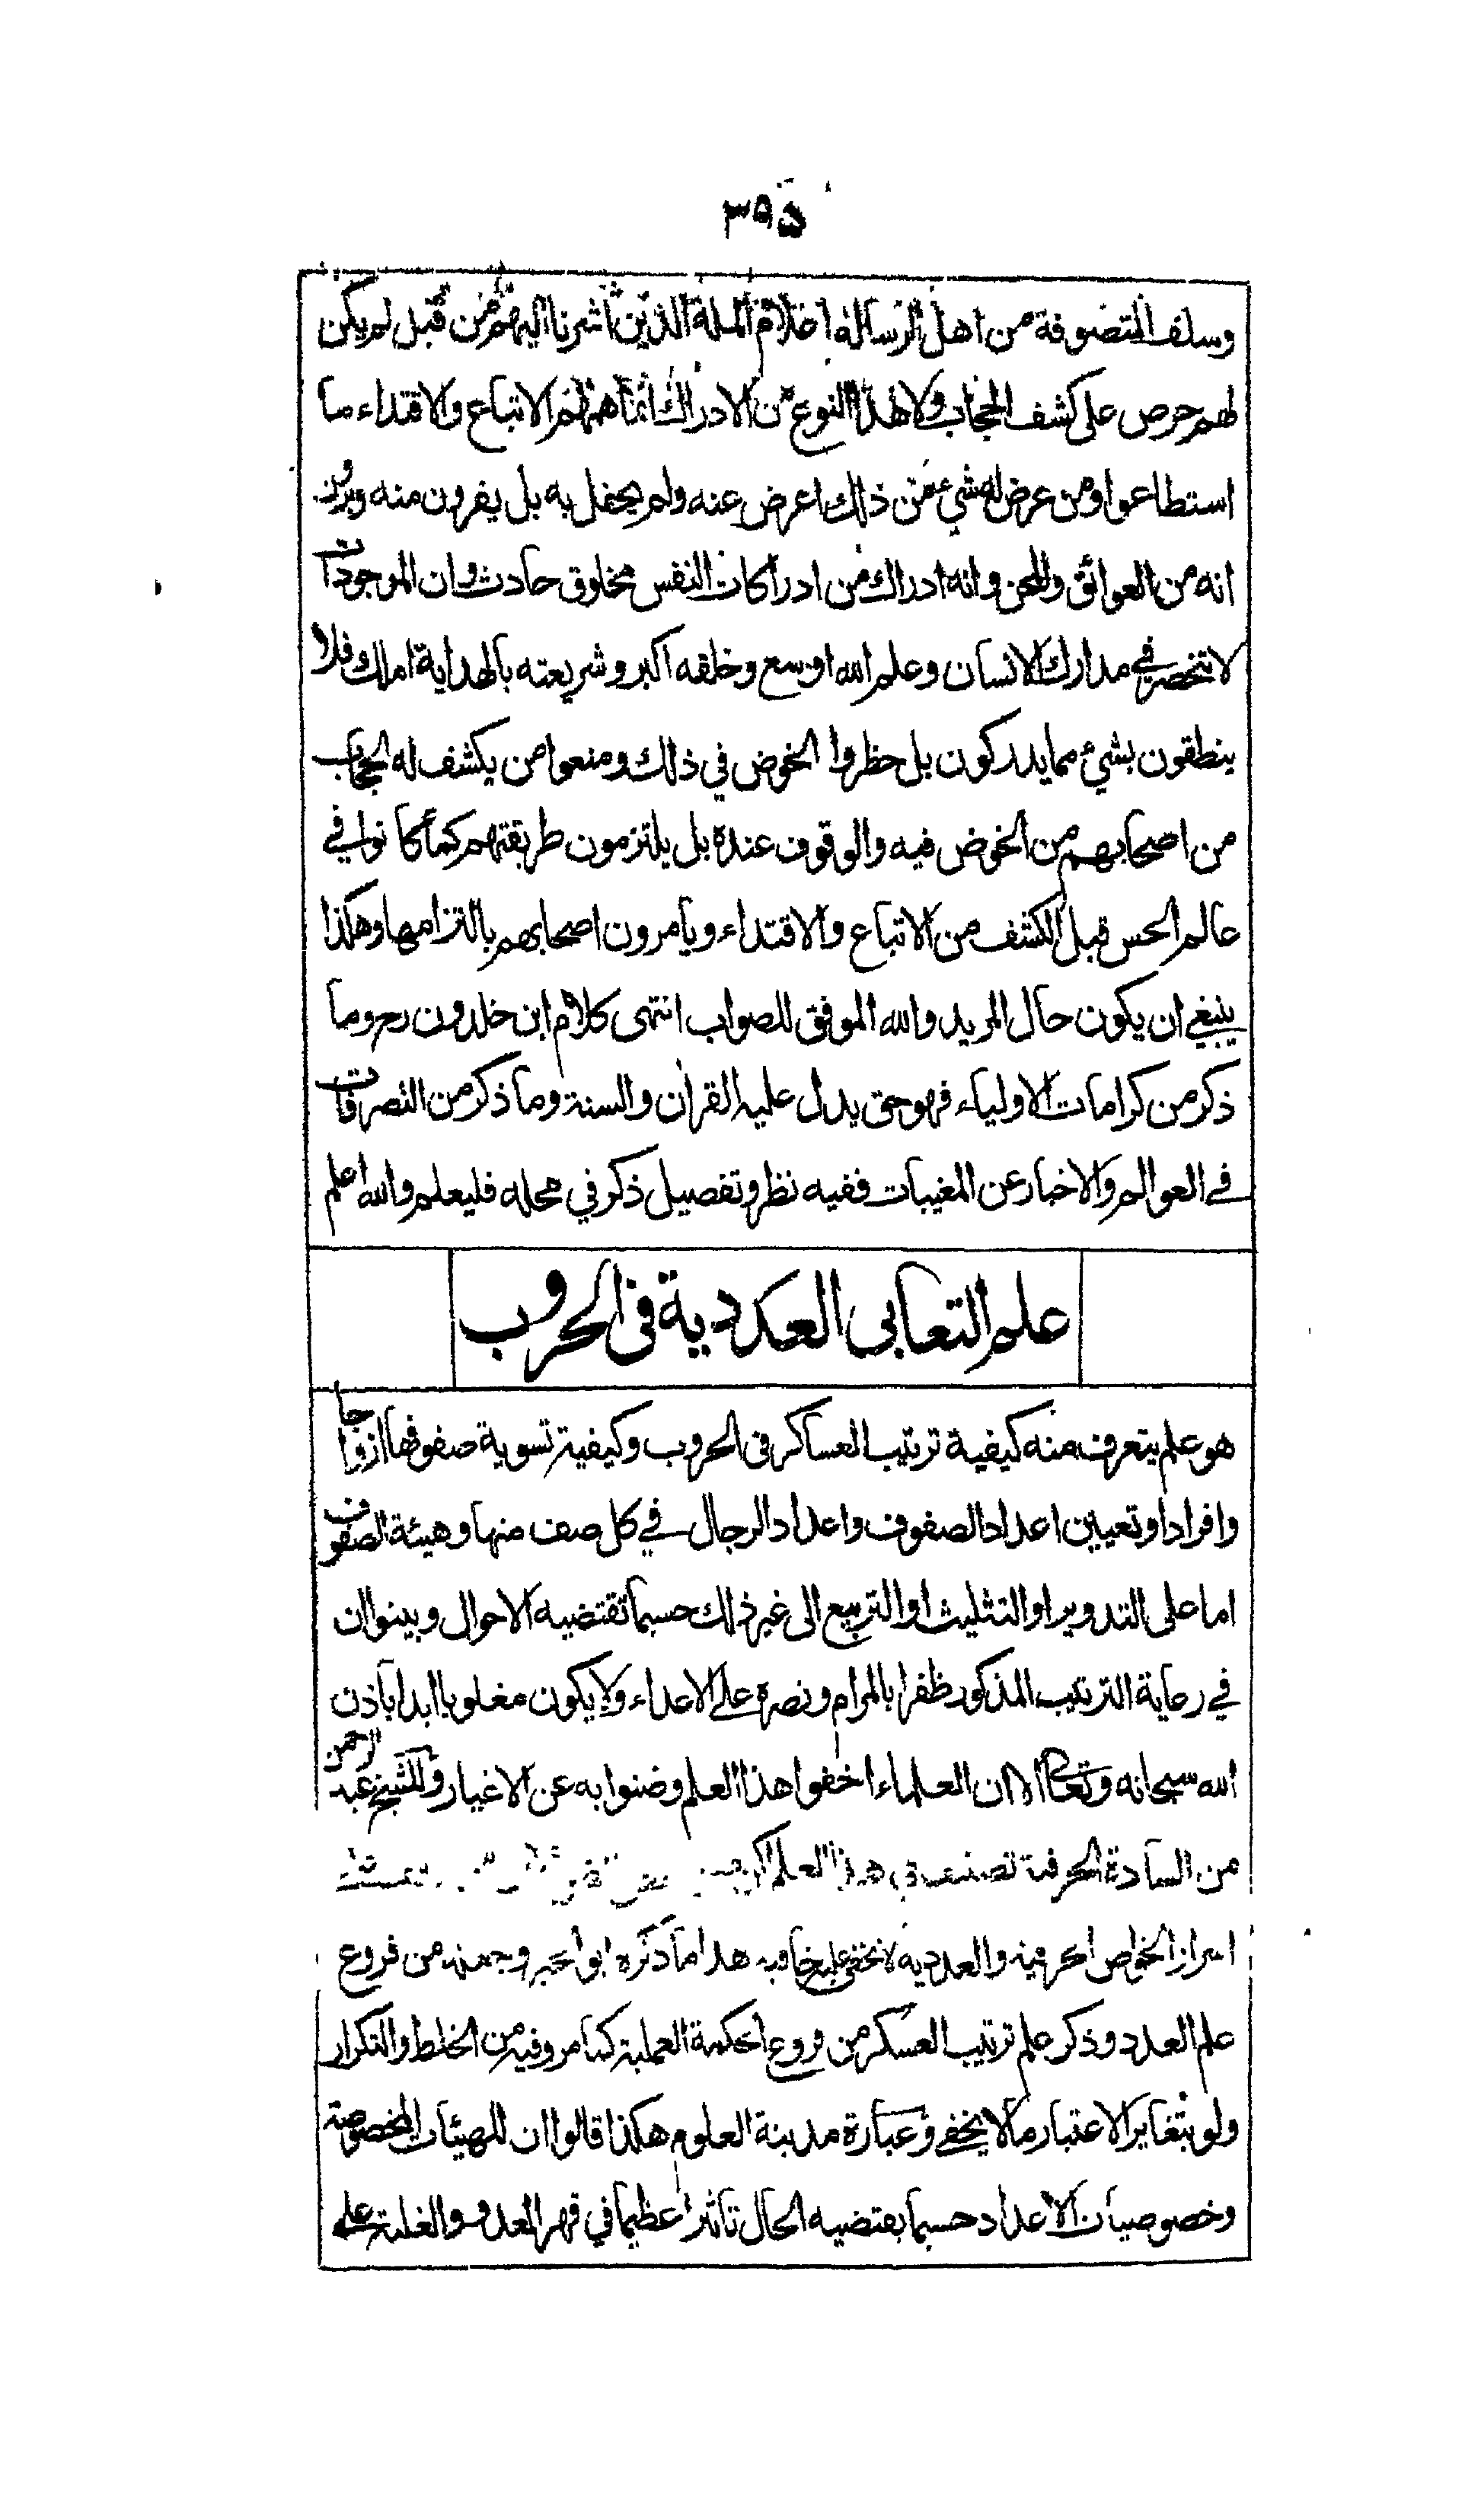 ٣٩٥
وسلف المتصوفة من اهل الرسالة اعلام الملة الذين اشرنا اليهم من قبل لم يكن
لهم حرص على كشف الحجاب ولا هذا النوع من الادراك انما همهم الاتباع والاقتداء ما
استطاعوا ومن عرض له شيء من ذلك اعرض عنه ولم يحفل به بل يفرون منه ويرون
انه من العوائق والمحن وانه ادراك من ادراكات النفس مخلوق حادث وان الموجودات
لا تنحصر في مدارك الانسان وعلم الله اوسع وخلقه اكبر وشريعته بالهداية املك فلا
ينطقون بشئ مما يدركون بل حظروا الخوض في ذلك ومنعوا من يكشف له الحجاب
من اصحابهم من الخوض فيه والوقوف عنده بل يلتزمون طريقتهم كما كانوا في
عالم الحس قبل الكشف من الاتباع والاقتداء ويأمرون اصحابهم بالتزامها وهكذا
ينبغي ان يكون حال المريد والله الموفق للصواب انتهى كلام ابن خلدون رح وما
ذكر من كرامات الاولياء فهو حق يدل عليه القران والسنة وما ذكر من التصرفات
في العوالم والاخبار عن المغيبات ففيه نظر وتفصيل ذكر في محله فليعلم والله اعلم
علم التعابى العددية فى الحروب
هو علم يتعرف منه كيفية ترتيب العساكر فى الحروب وكيفية تسوية صفوفها ازواجا
وافرادا وتعيين اعداد الصفوف واعداد الرجال في كل صف منها وهيئة الصفوف
اما على التدوير او التثليث او التربيع الى غير ذلك حسبما تقتضيه الاحوال وبينوا ان
في رعاية الترتيب المذكور ظفرا بالمرام ونصرة على الاعداء ولا يكون مغلوبا ابدا باذن
الله سبحانه وتعالى الا ان العلماء اخفوا هذا العلم وضنوا به عن الاغيار وللشيخ عبد الرحمن
من السادة الحرفية تصنيف في هذا العلم
اسرار الخواص الحرفية والعددية لا تخفى عليه خافية هذا ما ذكره ابو الخير وجعله من فروع
علم العدد وذكر علم ترتيب العسكر من فروع الحكمة العملية كما مر وفيه من الخلط والتكرار
ولو بتغاير الاعتبار ما لا يخفى وعبارة مدينة العلوم هكذا قالوا ان للهيئات المخصوصة
وخصوصيات الاعداد حسبما يقتضيه الحال تاثيرا عظيما في قهر العدو والغلبة على